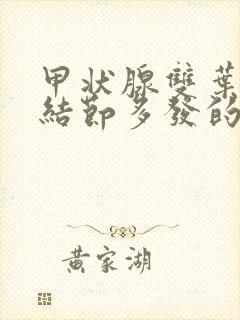 甲状腺雙葉
結節多發的
黃家湖